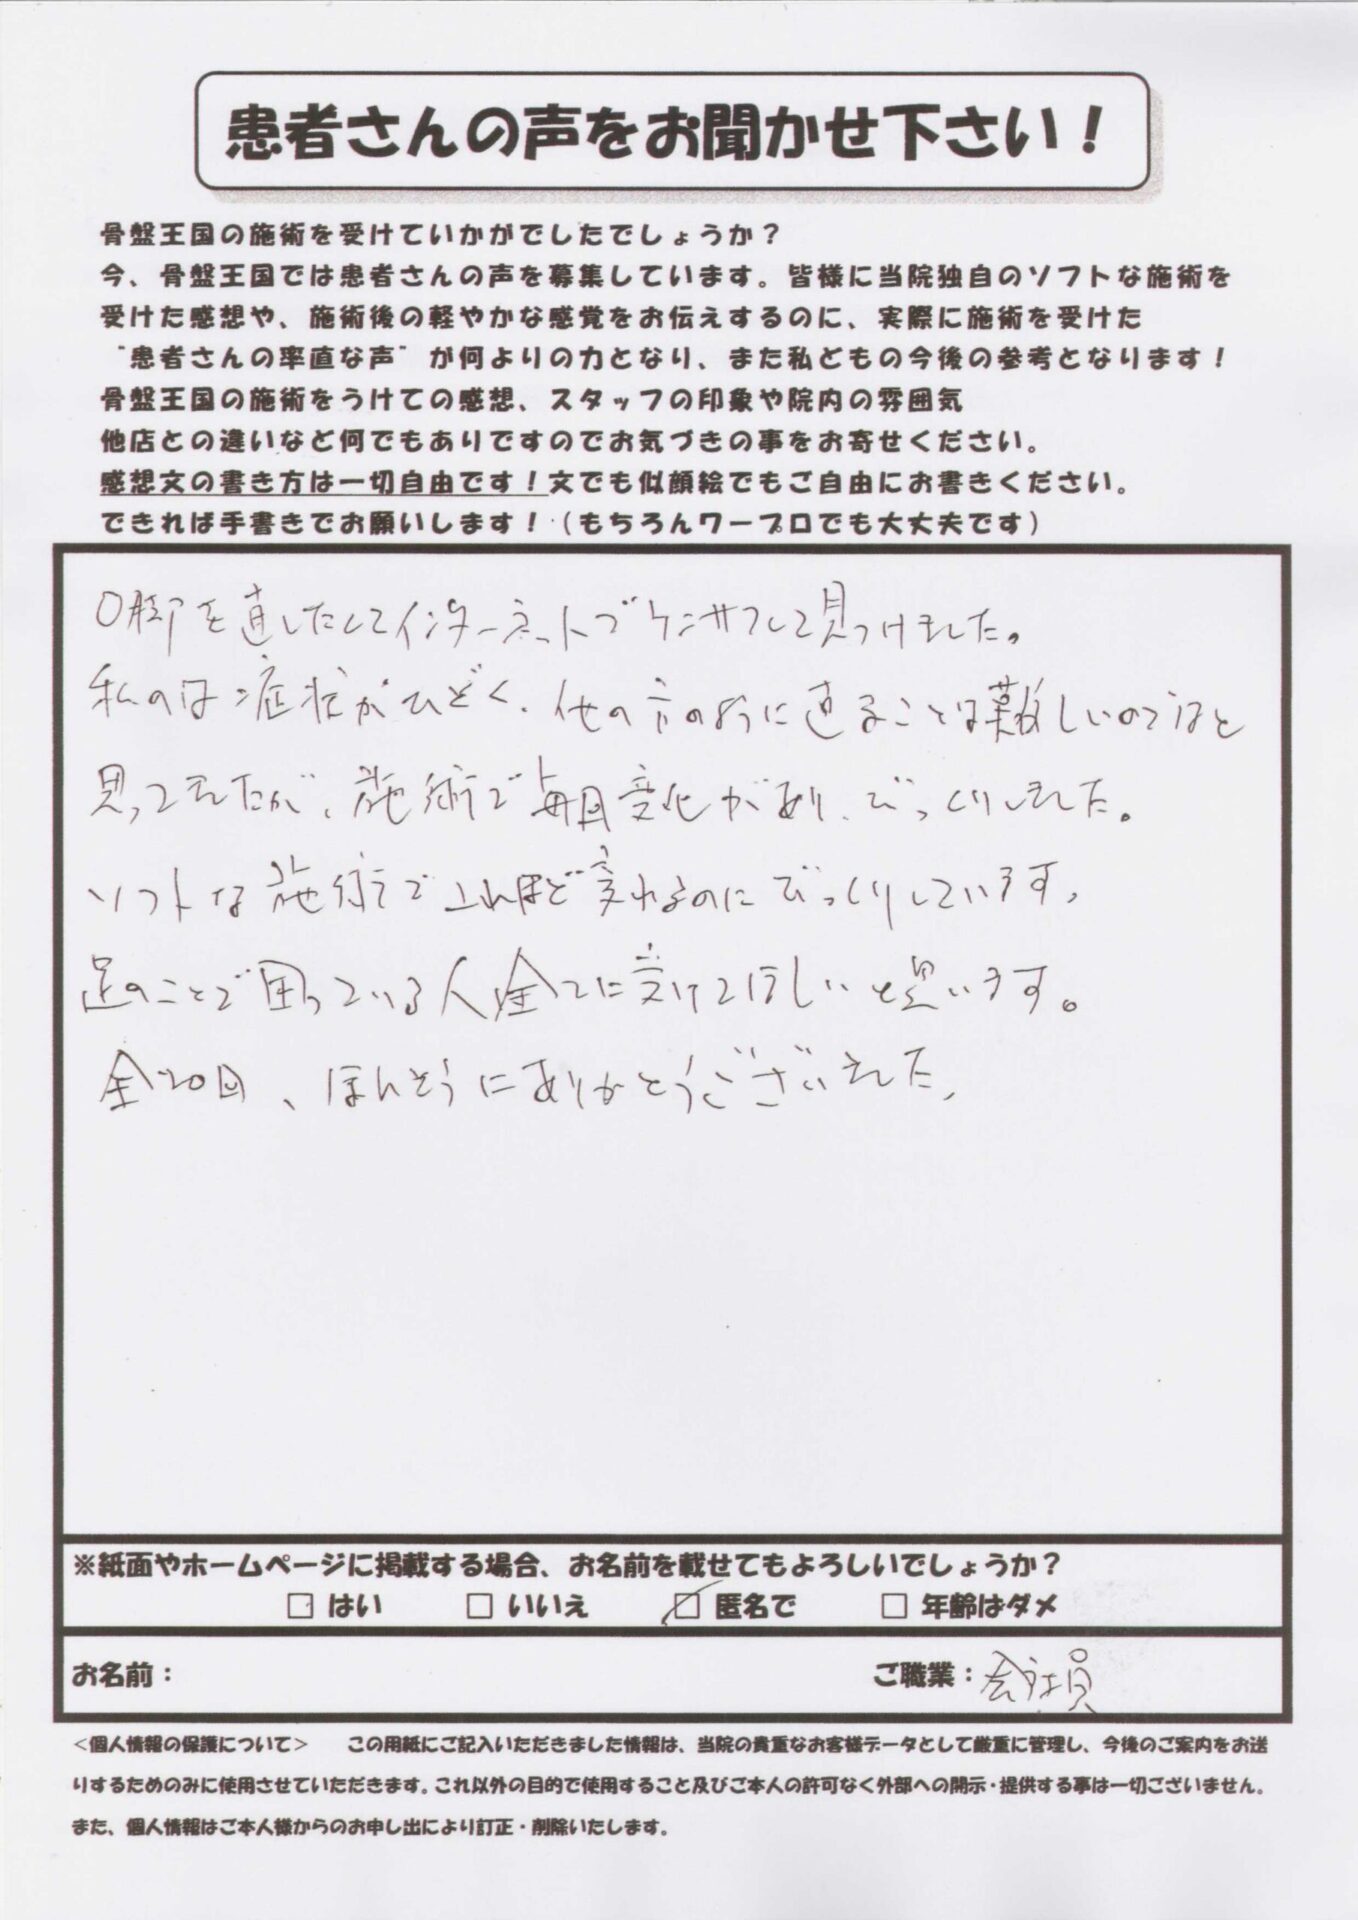 患者さんの声をお聞かせ下さい！
骨盤王国の施術を受けていかがでしたでしょうか？
今、骨盤王国では患者さんの声を募集しています。皆様に当院独自のソフトな施術を
受けた感想や、施術後の軽やかな感覚をお伝えするのに、実際に施術を受けた
“患者さんの率直な声”が何よりの力となり、また私どもの今後の参考となります！
骨盤王国の施術をうけての感想、スタッフの印象や院内の雰囲気
他店との違いなど何でもありですのでお気づきの事をお寄せください。
感想文の書き方は一切自由です！文でも似顔絵でもご自由にお書きください。
できれば手書きでお願いします！（もちろんワープロでも大丈夫です）
O脚を直したくてインターネットでケンサクして見つけました。
私のは症状がひどく、他の方のように直ることは難しいのではと
思ってましたが、施術で毎回変化があり、びっくりしました。
ソフトな施術でこれほど変われるのにびっくりしています。
足のことで困っている人全てに受けてほしいと思います。
全20回、ほんとうにありがとうございました。
※紙面やホームページに掲載する場合、お名前を載せてもよろしいでしょうか？
□ はい □ いいえ ☑ 匿名で □ 年齢はダメ
お名前： ご職業：会社員
＜個人情報の保護について＞ この用紙にご記入いただきました情報は、当院の貴重なお客様データとして厳重に管理し、今後のご案内をお送
りするためのみに使用させていただきます。これ以外の目的で使用すること及びご本人の許可なく外部への開示・提供する事は一切ございません。
また、個人情報はご本人様からのお申し出により訂正・削除いたします。